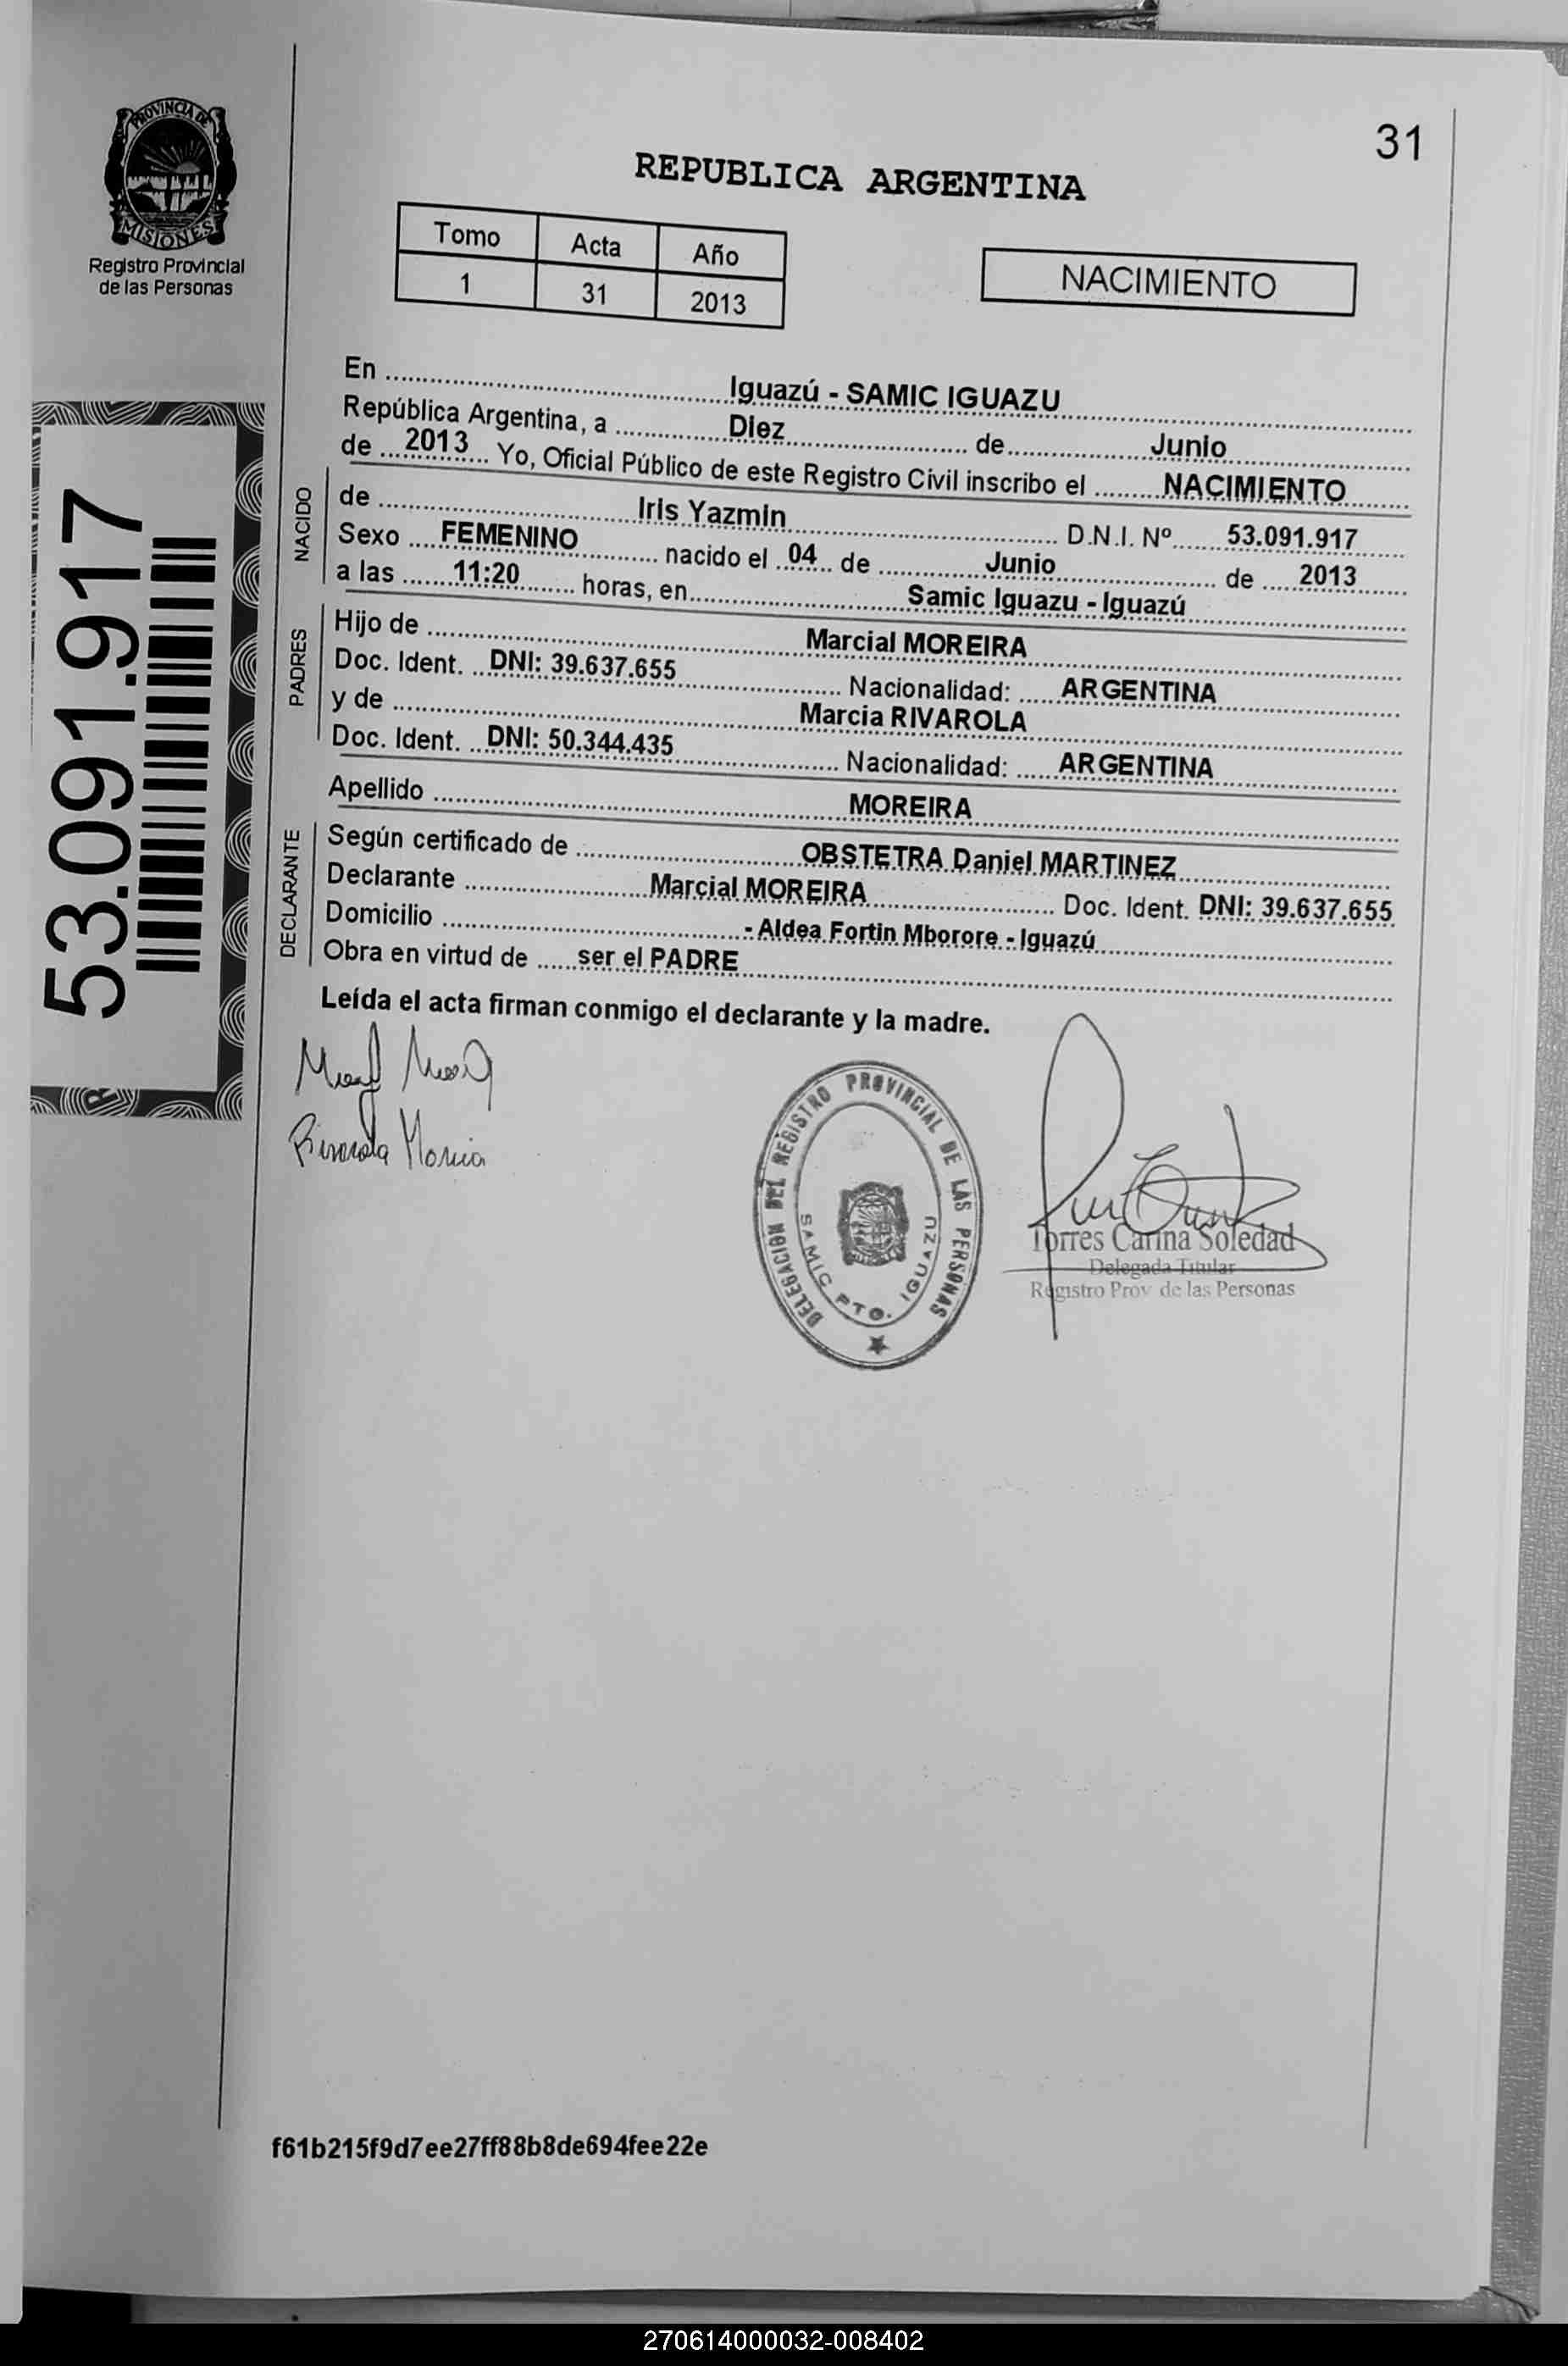 31
PROVINCIA DE
MISIONES
Registro Provincial
de las Personas
REPUBLICA ARGENTINA
Tomo Acta Año
1 31 2013
NACIMIENTO
53.091.917
En Iguazú - SAMIC IGUAZU
República Argentina, a Diez de Junio
de 2013 Yo, Oficial Público de este Registro Civil inscribo el NACIMIENTO
NACIDO
de Iris Yazmin D.N.I. Nº 53.091.917
Sexo FEMENINO nacido el 04 de Junio de 2013
a las 11:20 horas, en Samic Iguazu - Iguazú
PADRES
Hijo de Marcial MOREIRA
Doc. Ident. DNI: 39.637.655 Nacionalidad: ARGENTINA
y de Marcia RIVAROLA
Doc. Ident. DNI: 50.344.435 Nacionalidad: ARGENTINA
Apellido MOREIRA
DECLARANTE
Según certificado de OBSTETRA Daniel MARTINEZ
Declarante Marcial MOREIRA Doc. Ident. DNI: 39.637.655
Domicilio - Aldea Fortin Mborore - Iguazú
Obra en virtud de ser el PADRE
Leída el acta firman conmigo el declarante y la madre.
DELEGACION DEL REGISTRO PROVINCIAL DE LAS PERSONAS
SAMIC PTO. IGUAZU
Torres Carina Soledad
Delegada Titular
Registro Prov de las Personas
f61b215f9d7ee27ff88b8de694fee22e
270614000032-008402